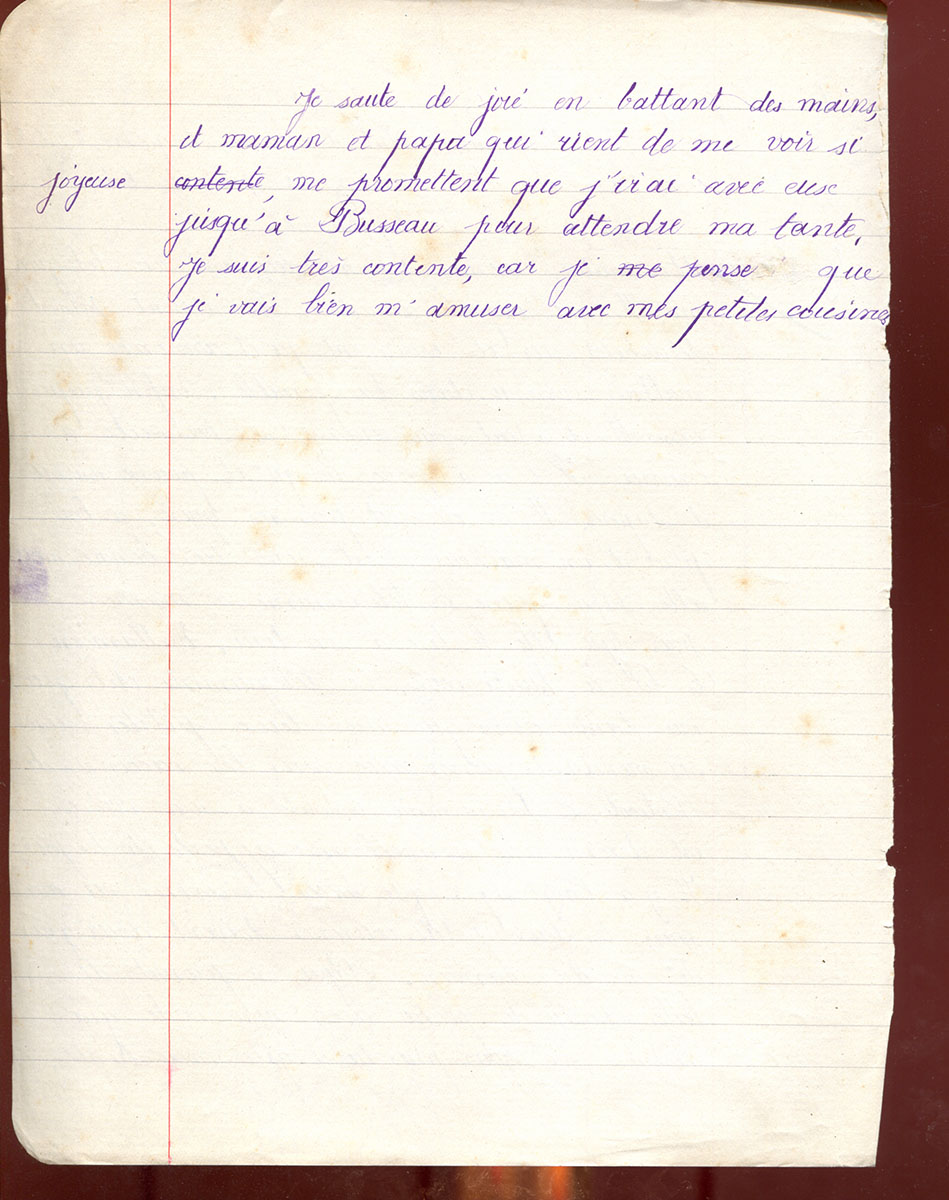 Je saute de joie en battant des mains,
et maman et papa qui rient de me voir si
joyeuse contente, me promettent que j'irai avec eux
jusqu'à Busseau pour attendre ma tante.
Je suis très contente, car je me pense que
je vais bien m'amuser avec mes petites cousines